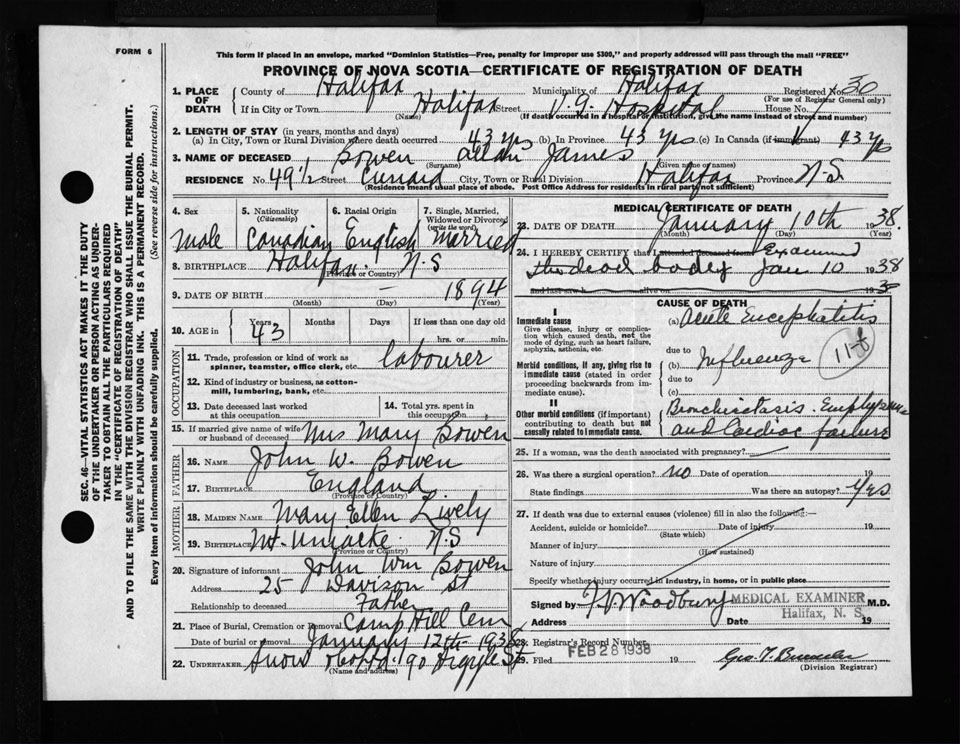 FORM 6
This form if placed in an envelope, marked "Dominion Statistics—Free, penalty for improper use $300," and properly addressed will pass through the mail "FREE"
PROVINCE OF NOVA SCOTIA—CERTIFICATE OF REGISTRATION OF DEATH
1. PLACE OF DEATH County of Halifax Municipality of Halifax Registered No. 30
(For use of Registrar General only)
If in City or Town Halifax Street V.G. Hospital House No.
(Name) (If death occurred in a hospital or institution, give the name instead of street and number)
2. LENGTH OF STAY (in years, months and days)
(a) In City, Town or Rural Division where death occurred 43 yrs (b) In Province 43 yrs (c) In Canada (if immigrant) 43 yrs
3. NAME OF DECEASED Bowen Allan James
(Surname) (Given name or names)
RESIDENCE No. 49 1/2 Street Cunard City, Town or Rural Division Halifax Province N.S.
(Residence means usual place of abode. Post Office Address for residents in rural parts not sufficient)
4. Sex 5. Nationality (Citizenship) 6. Racial Origin 7. Single, Married, Widowed or Divorced (write the word)
Male Canadian English Married
8. BIRTHPLACE Halifax N.S
(Province or Country)
9. DATE OF BIRTH — 1894
(Month) (Day) (Year)
10. AGE in Years 43 Months Days If less than one day old
hrs. or min.
OCCUPATION
11. Trade, profession or kind of work as spinner, teamster, office clerk, etc. labourer
12. Kind of industry or business, as cotton-mill, lumbering, bank, etc.
13. Date deceased last worked at this occupation 14. Total yrs. spent in this occupation
15. If married give name of wife or husband of deceased Mrs Mary Bowen
FATHER
16. NAME John W. Bowen
17. BIRTHPLACE England
(Province or Country)
MOTHER
18. MAIDEN NAME Mary Ellen Lively
19. BIRTHPLACE Mt. Uniacke N.S
(Province or Country)
20. Signature of informant John Wm Bowen
Address 25 Davison St
Relationship to deceased Father
21. Place of Burial, Cremation or Removal Camp Hill Cem
Date of burial or removal January 12th 1938
22. UNDERTAKER Snow 90 Argyle St
MEDICAL CERTIFICATE OF DEATH
23. DATE OF DEATH January 10th 1938.
(Month) (Day) (Year)
24. I HEREBY CERTIFY that I attended deceased from Examined
the dead body Jan 10 1938
and last saw h alive on 19
CAUSE OF DEATH
I
Immediate cause
Give disease, injury or complication which caused death, not the mode of dying, such as heart failure, asphyxia, asthenia, etc.
(a) Acute Encephalitis
due to
Morbid conditions, if any, giving rise to immediate cause (stated in order proceeding backwards from immediate cause).
(b) Influenza
due to
(c)
II
Other morbid conditions (if important) contributing to death but not causally related to immediate cause.
Bronchiectasis. Emphysema
and Cardiac failure
25. If a woman, was the death associated with pregnancy?
26. Was there a surgical operation? no Date of operation 19
State findings Was there an autopsy? Yes
27. If death was due to external causes (violence) fill in also the following:—
Accident, suicide or homicide? Date of injury 19
(State which)
Manner of injury
(How sustained)
Nature of injury
Specify whether injury occurred in industry, in home, or in public place
Signed by Woodbury MEDICAL EXAMINER M.D.
Address Halifax, N. S. Date 19
28. Registrar's Record Number
29. Filed FEB 28 1938 19
(Division Registrar)
SEC. 46—VITAL STATISTICS ACT MAKES IT THE DUTY
OF THE UNDERTAKER OR PERSON ACTING AS UNDER-
TAKER TO OBTAIN ALL THE PARTICULARS REQUIRED
IN THE "CERTIFICATE OF REGISTRATION OF DEATH"
AND TO FILE THE SAME WITH THE DIVISION REGISTRAR WHO SHALL ISSUE THE BURIAL PERMIT.
WRITE PLAINLY WITH UNFADING INK. THIS IS A PERMANENT RECORD.
Every item of information should be carefully supplied. (See reverse side for instructions.)